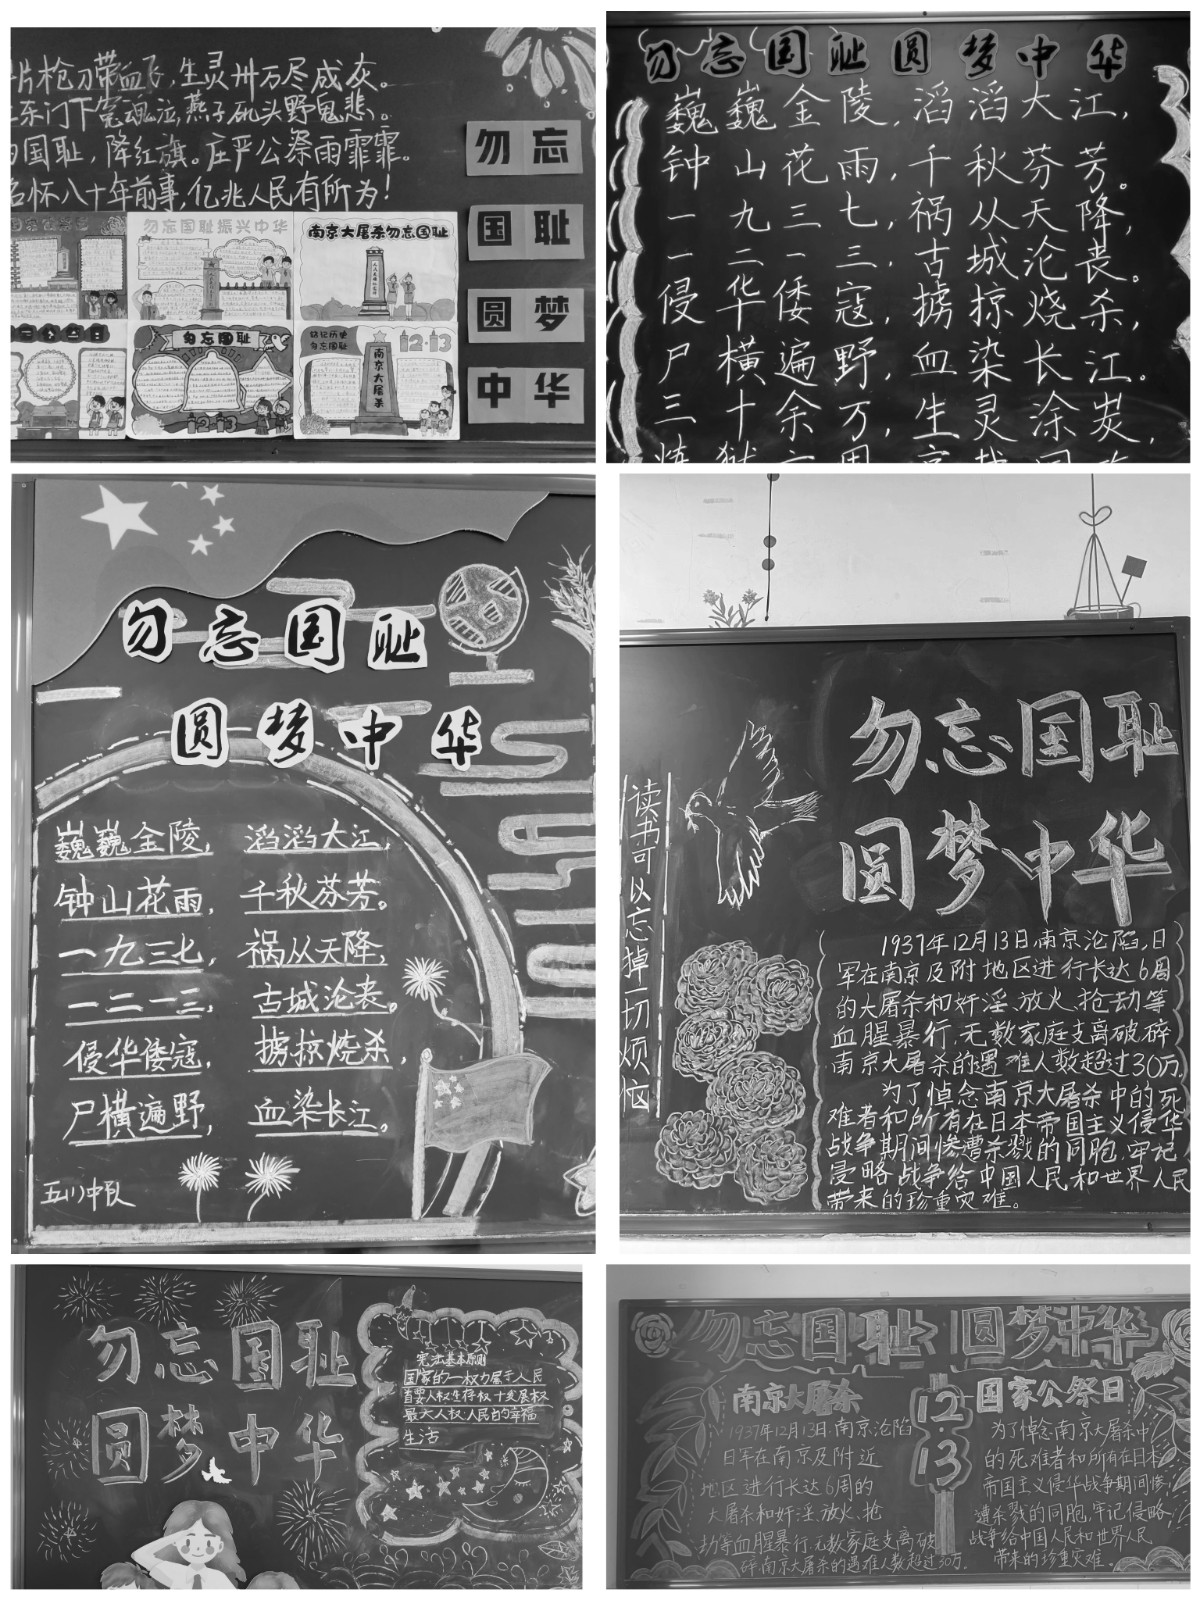 片枪刀带血飞,生灵卅万尽成灰。
东门下冤魂泣,燕子矶头野鬼悲。
国耻,降红旗。庄严公祭雨霏霏。
怀八十年前事,亿兆人民有所为!
勿忘
国耻
圆梦
中华
勿忘国耻振兴中华
南京大屠杀勿忘国耻
勿忘国耻
12·13
铭记历史
勿忘国耻
12·13
南京大屠杀
勿忘国耻圆梦中华
巍巍金陵,滔滔大江,
钟山花雨,千秋芬芳。
一九三七,祸从天降,
一二一三,古城沦丧。
侵华倭寇,掳掠烧杀,
尸横遍野,血染长江。
三十余万,生灵涂炭,
勿忘国耻
圆梦中华
巍巍金陵, 滔滔大江,
钟山花雨, 千秋芬芳。
一九三七, 祸从天降,
一二一三, 古城沦丧。
侵华倭寇, 掳掠烧杀,
尸横遍野, 血染长江。
五川中队
勿忘国耻
圆梦中华
读书可以忘掉一切烦恼
1937年12月13日南京沦陷,日
军在南京及附地区进行长达6周
的大屠杀和奸淫、放火、抢劫等
血腥暴行,无数家庭支离破碎
南京大屠杀的遇难人数超过30万.
为了悼念南京大屠杀中的死
难者和所有在日本帝国主义侵华
战争期间惨遭杀戮的同胞,牢记
侵略战争给中国人民和世界人民
带来的珍重灾难。
勿忘国耻
圆梦中华
宪法基本原则
国家的一权力属于人民
首要人权生存权十发展权
最大人权:人民的幸福
生活
勿忘国耻 圆梦中华
南京大屠杀
1937年12月13日,南京沦陷
日军在南京及附近
地区进行长达6周的
大屠杀和奸淫、放火、抢
劫等血腥暴行,无数家庭支离破
碎南京大屠杀的遇难人数超过30万.
12.13
国家公祭日
为了悼念南京大屠杀中
的死难者和所有在日本
帝国主义侵华战争期间惨
遭杀戮的同胞,牢记侵略
战争给中国人民和世界人民
带来的珍重灾难.